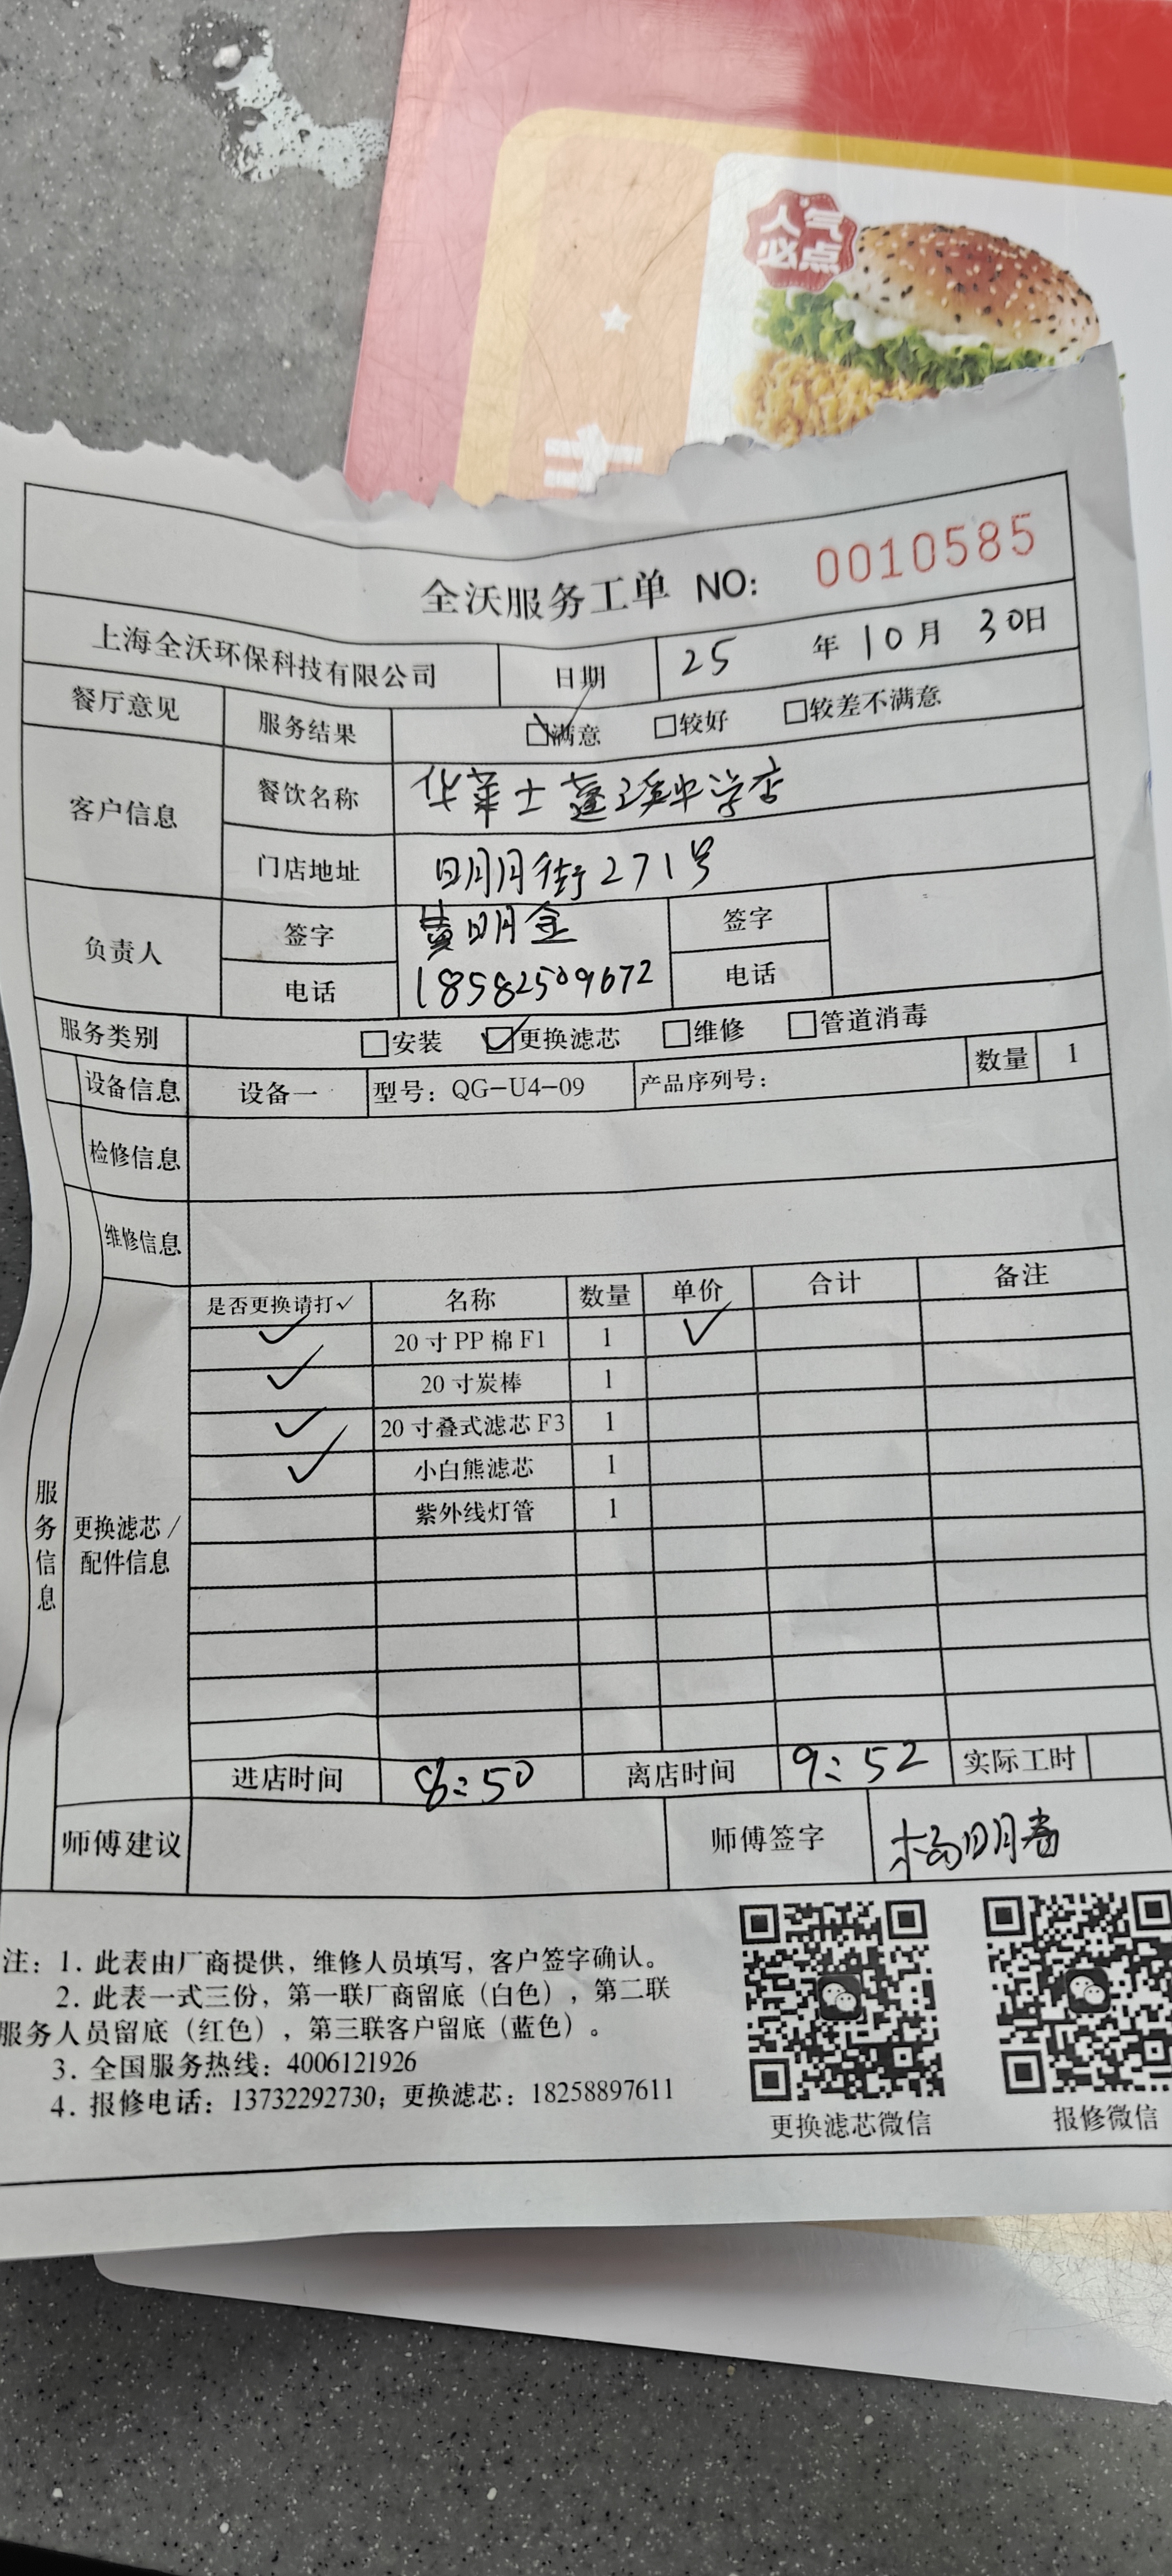 人气
必点
全沃服务工单 NO: 0010585
上海全沃环保科技有限公司 日期 25 年 10 月 30 日
餐厅意见 服务结果 ☑满意 □较好 □较差不满意
客户信息 餐饮名称 华莱士蓬溪中学店
门店地址 明月街271号
负责人 签字 黄明金 签字
电话 18582509672 电话
服务类别 □安装 ☑更换滤芯 □维修 □管道消毒
服务信息
设备信息 设备一 型号：QG-U4-09 产品序列号： 数量 1
检修信息
维修信息
更换滤芯/
配件信息
是否更换请打✓ 名称 数量 单价 合计 备注
✓ 20寸PP棉F1 1 ✓
✓ 20寸炭棒 1
✓ 20寸叠式滤芯F3 1
✓ 小白熊滤芯 1
紫外线灯管 1
进店时间 8:50 离店时间 9:52 实际工时
师傅建议 师傅签字 杨明春
注：1. 此表由厂商提供，维修人员填写，客户签字确认。
2. 此表一式三份，第一联厂商留底（白色），第二联
服务人员留底（红色），第三联客户留底（蓝色）。
3. 全国服务热线：4006121926
4. 报修电话：13732292730；更换滤芯：18258897611
更换滤芯微信 报修微信